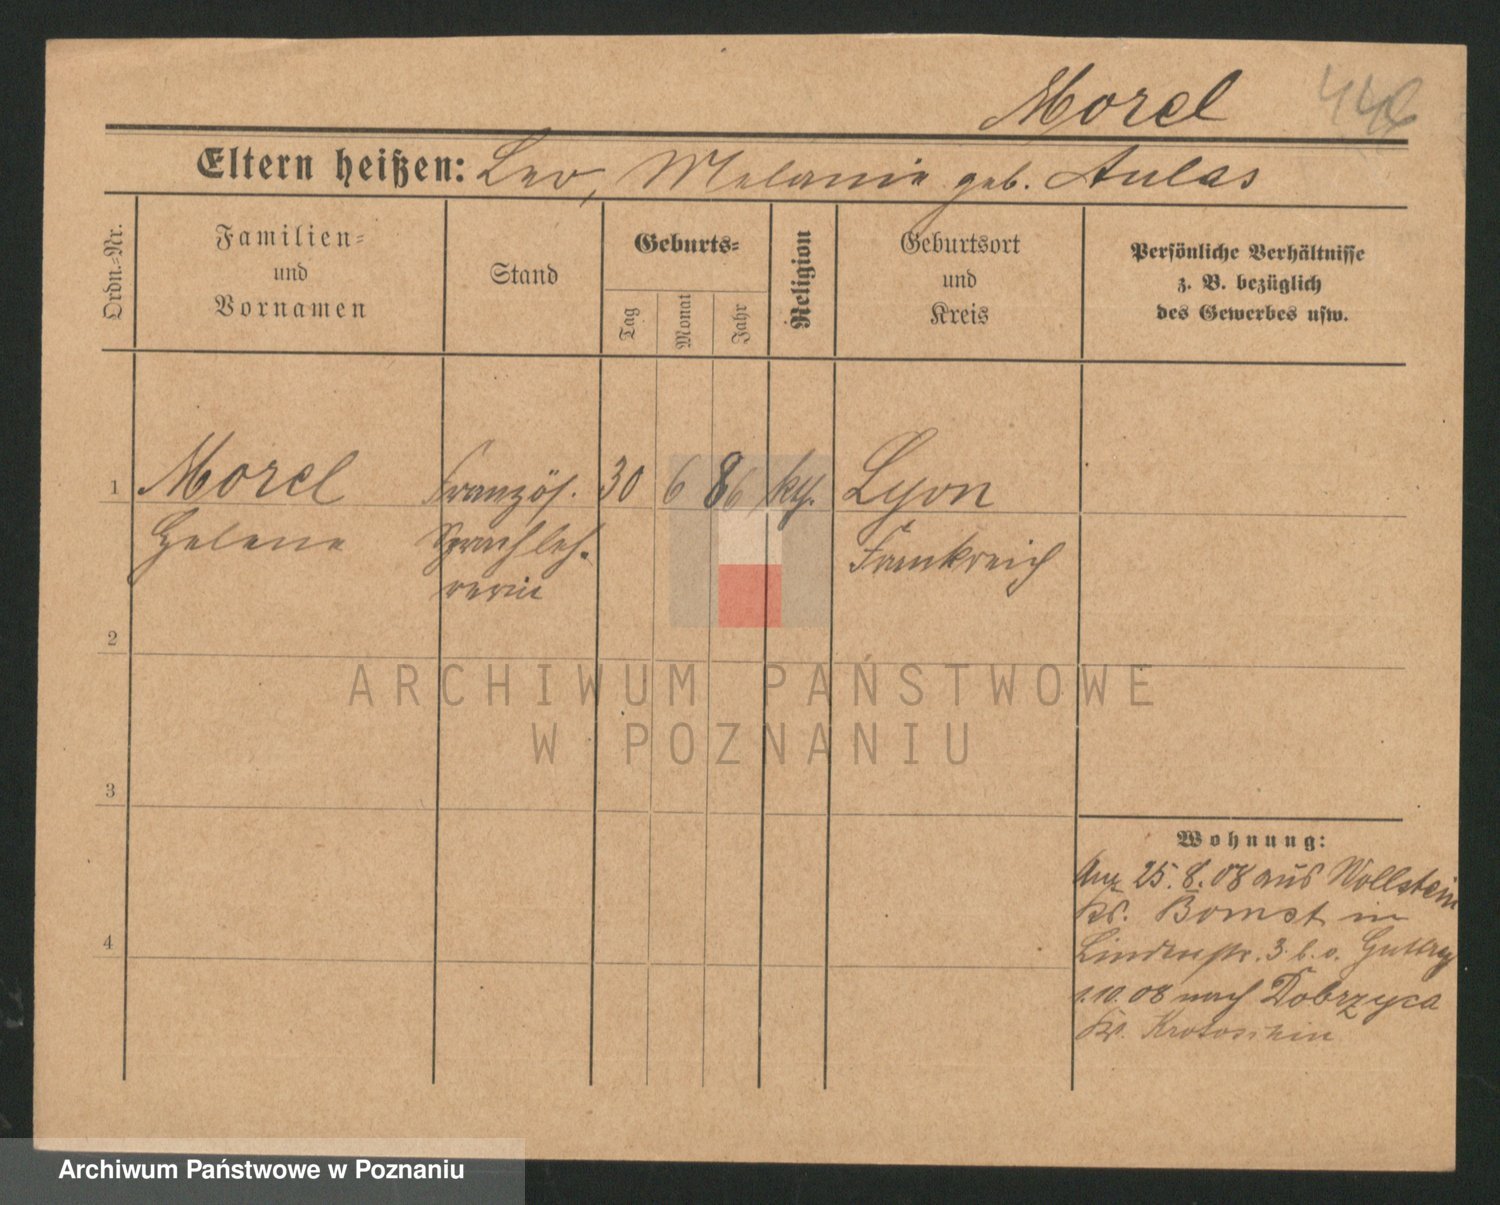 Morel
446
Eltern heißen: Leo, Melanie geb. Aulas
Ordn.-Nr.
Familien-
und
Vornamen
Stand
Geburts-
Tag
Monat
Jahr
Religion
Geburtsort
und
Kreis
Persönliche Verhältnisse
z. B. bezüglich
des Gewerbes usw.
1 Morel Französ. 30 6 86 kth. Lyon
Helene Sprachleh- Frankreich
rerin
2
ARCHIWUM PAŃSTWOWE
W POZNANIU
3
Wohnung:
Anz 25.8.08 aus Wollstein
Kr. Bomst in
4
Lindenstr. 3 b. v.
1.10.08 nach Dobrzyca
Kr. Krotoschin
Archiwum Państwowe w Poznaniu